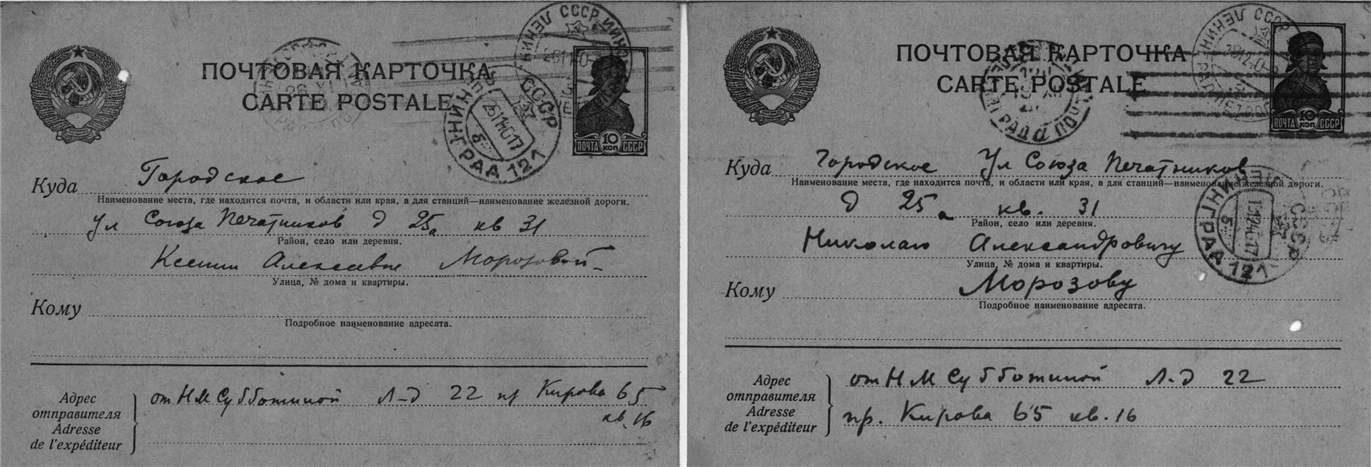 ПОЧТОВАЯ КАРТОЧКА
CARTE POSTALE
ПОЧТА 10 КОП. СССР
СССР
ЛЕНИНГРАД 121
Куда Городское
Наименование места, где находится почта, и области или края, а для станций—наименование железной дороги.
ул Союза Печатников д 25а кв 31
Район, село или деревня.
Ксении Алексевне Морозовой
Улица, № дома и квартиры.
Кому
Подробное наименование адресата.
Адрес отправителя
Adresse de l'expéditeur
от Н М Субботиной Л-д 22 пр Кирова 65
кв. 16
ПОЧТОВАЯ КАРТОЧКА
CARTE POSTALE
ПОЧТА 10 КОП. СССР
СССР
ЛЕНИНГРАД 121
Куда Городское Ул Союза Печатников
Наименование места, где находится почта, и области или края, а для станций—наименование железной дороги.
д 25а кв. 31
Район, село или деревня.
Николаю Александровичу
Улица, № дома и квартиры.
Кому Морозову
Подробное наименование адресата.
Адрес отправителя
Adresse de l'expéditeur
от Н М Субботиной Л-д 22
пр. Кирова 65 кв. 16